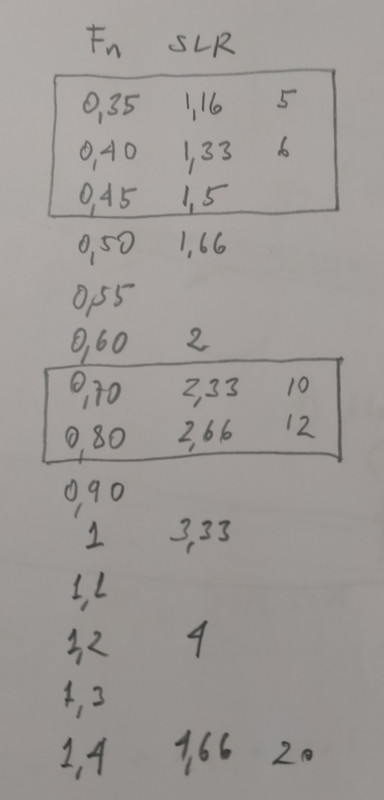 Fn SLR
0,35 1,16 5
0,40 1,33 6
0,45 1,5
0,50 1,66
0,55
0,60 2
0,70 2,33 10
0,80 2,66 12
0,90
1 3,33
1,1
1,2 4
1,3
1,4 4,66 20